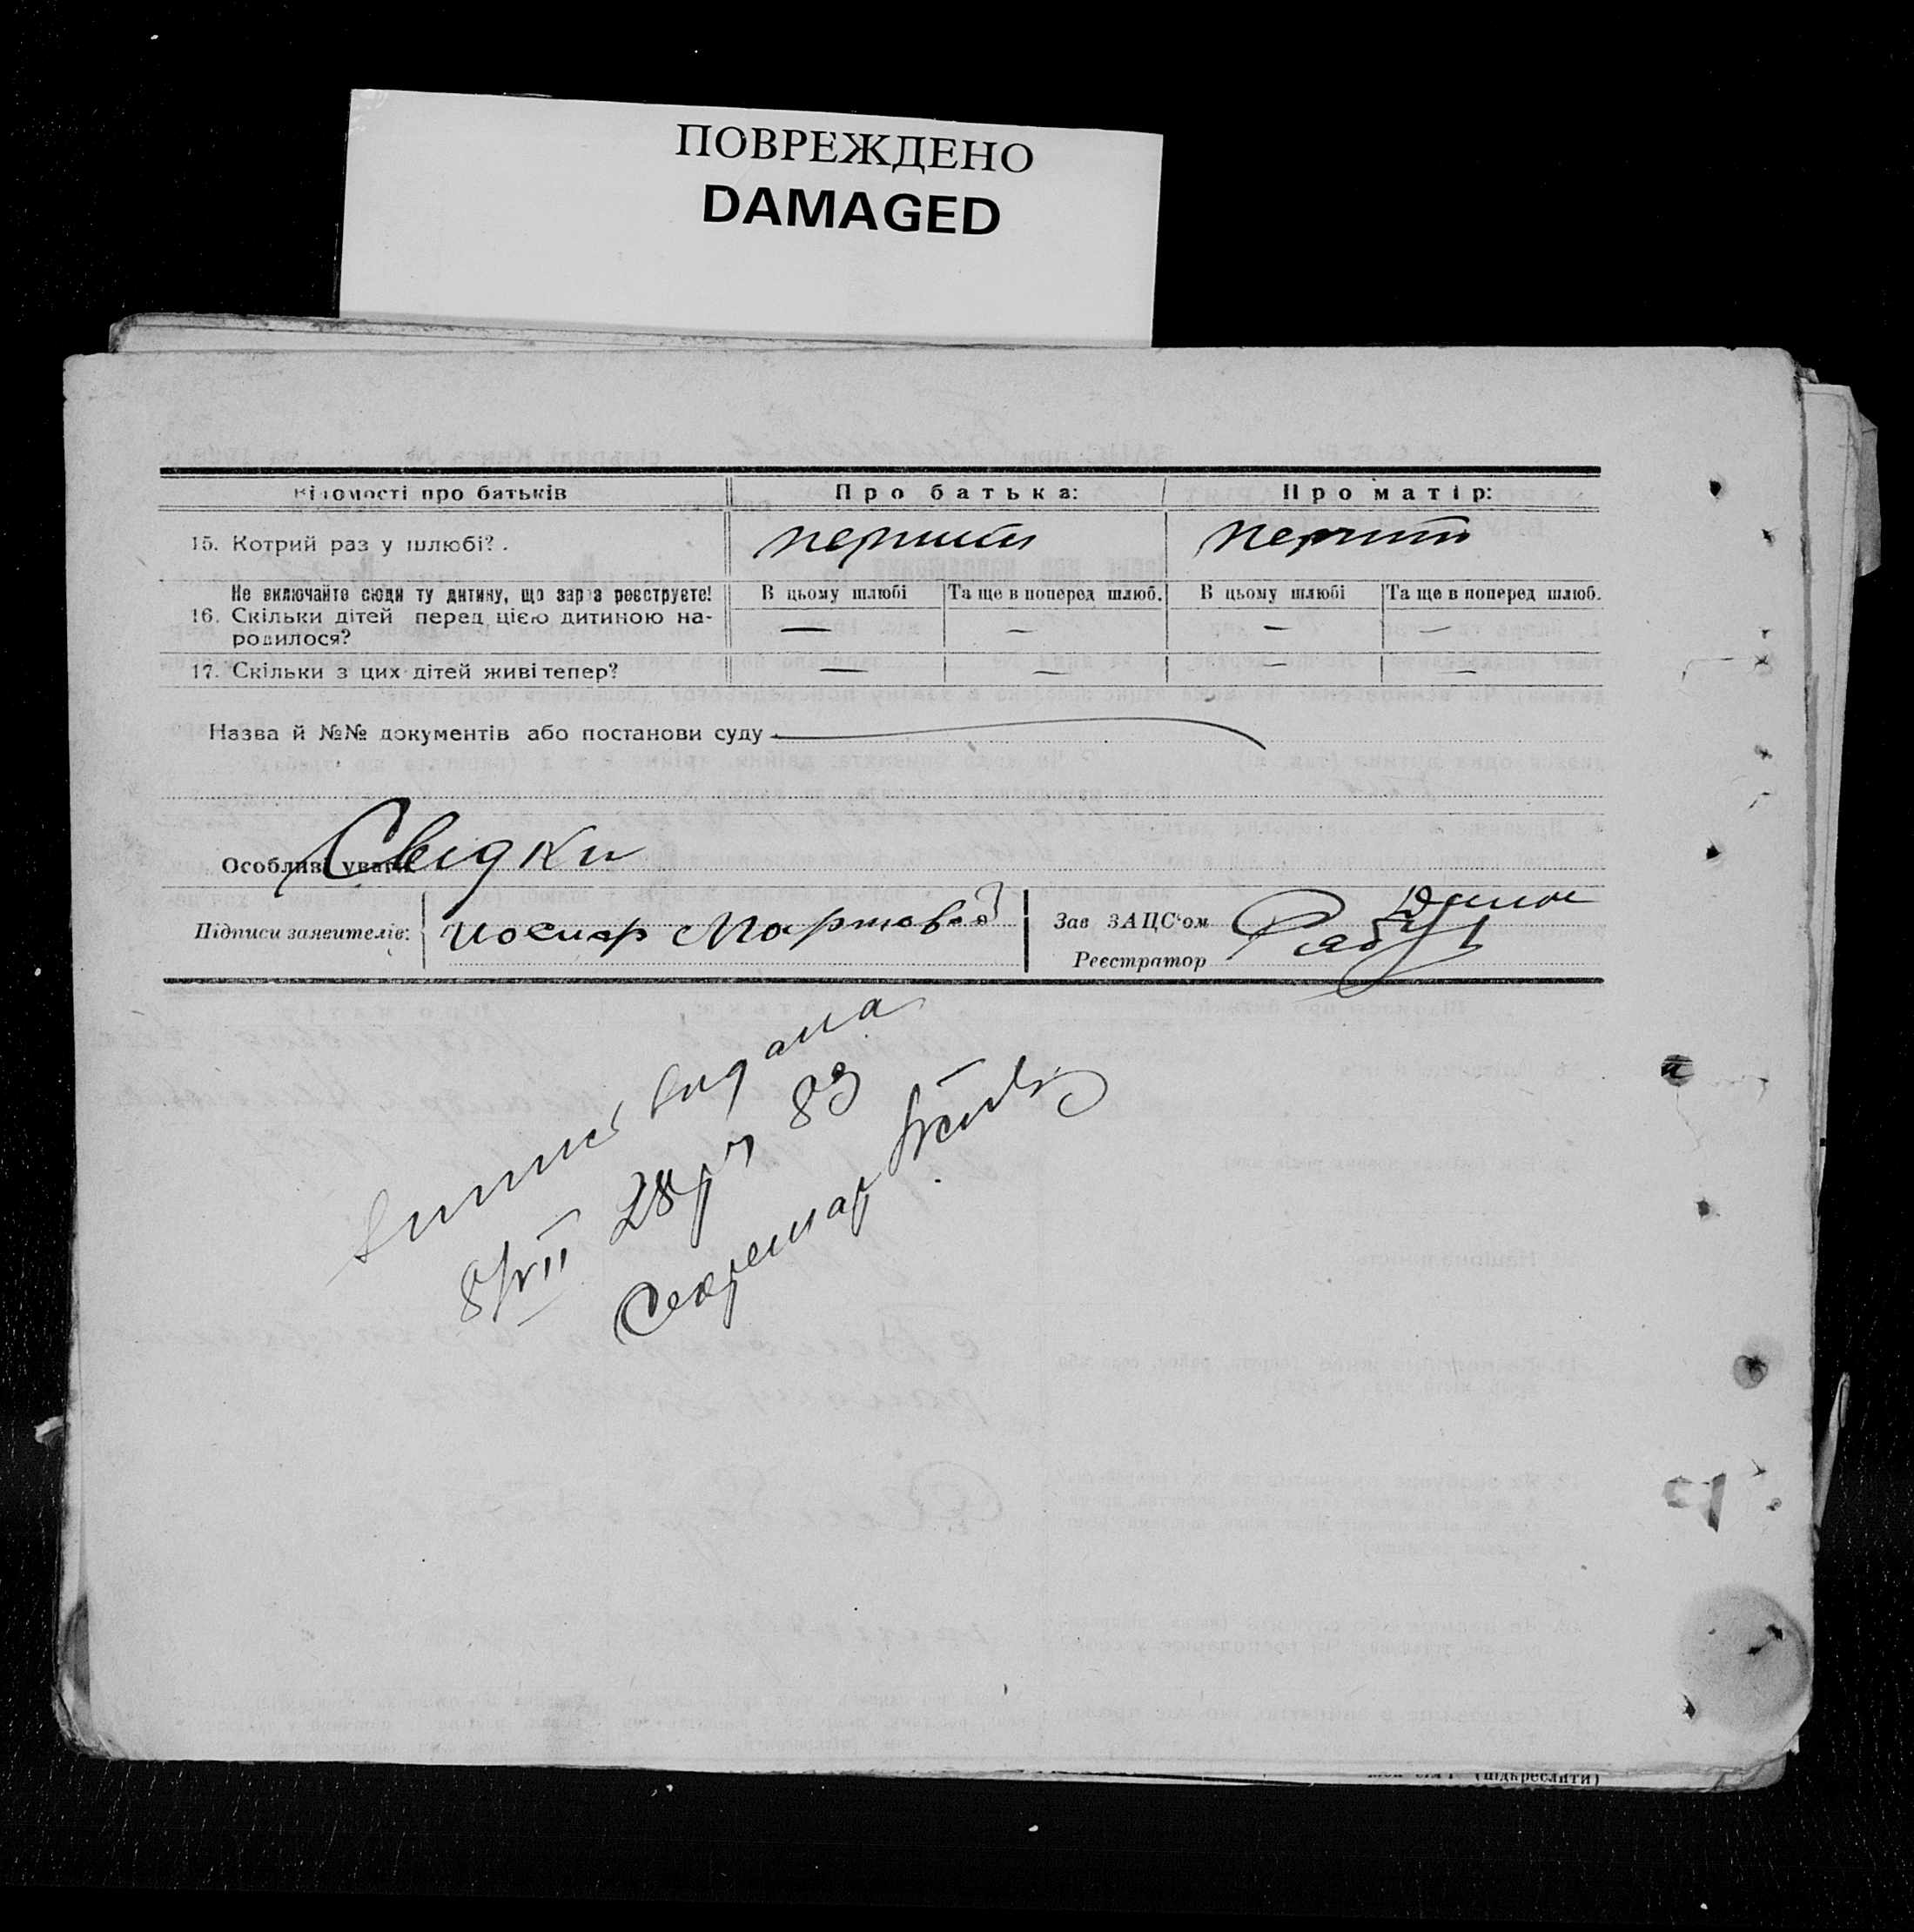 ПОВРЕЖДЕНО
DAMAGED
Відомості про батьків
Про батька:
Про матір:
15. Котрий раз у шлюбі?.
перший
перший
Не включайте сюди ту дитину, що зараз реєструєте!
В цьому шлюбі
Та ще в поперед шлюб.
В цьому шлюбі
Та ще в поперед шлюб.
16. Скільки дітей перед цією дитиною на-
родилося?
—
—
—
—
17. Скільки з цих дітей живі тепер?
—
—
—
—
Назва й №№ документів або постанови суду
Особливі уваги
Свідки
Підписи заявителів:
Иосип Мартов
Зав ЗАЦС'ом
Реєстратор
Витись видана
8/VII 28 р № 83
Секретар
(підкреслити)